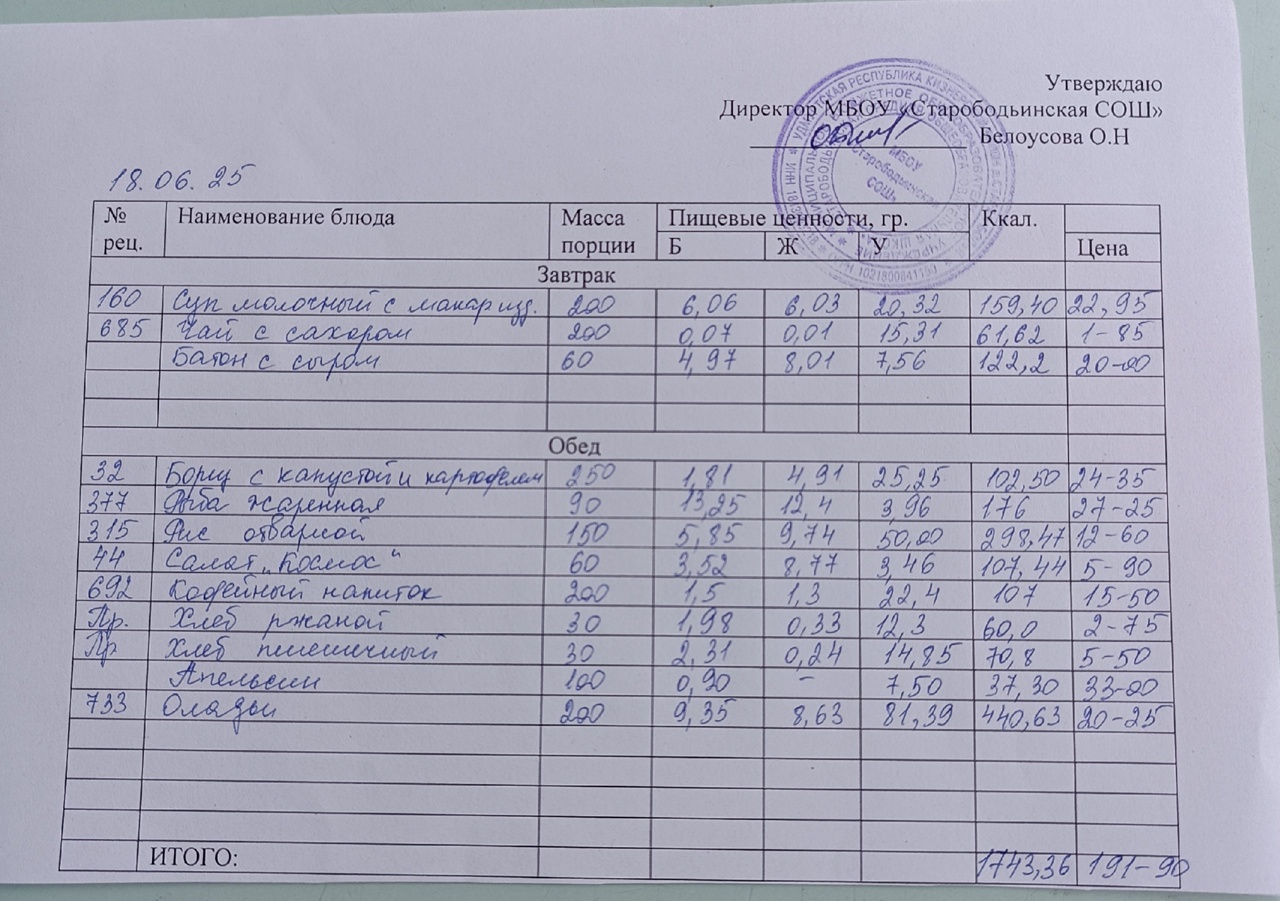 Утверждаю
Директор МБОУ «Старободьинская СОШ»
Белоусова О.Н
МБОУ «Старободьинская СОШ»
18.06.25
№ рец. Наименование блюда Масса порции Пищевые ценности, гр. Ккал.
Б Ж У Цена
Завтрак
160 Суп молочный с макар изд. 200 6,06 6,03 20,32 159,40 22,95
685 Чай с сахаром 200 0,07 0,01 15,31 61,62 1-85
Батон с сыром 60 4,97 8,01 7,56 122,2 20-00
Обед
32 Борщ с капустой и картофелем 250 1,81 4,91 25,25 102,50 24-35
377 Рыба жаренная 90 13,25 12,4 3,96 176 27-25
315 Рис отварной 150 5,85 9,74 50,00 298,47 12-60
44 Салат „Космос“ 60 3,52 8,77 3,46 107,44 5-90
692 Кофейный напиток 200 1,5 1,3 22,4 107 15-50
Пр. Хлеб ржаной 30 1,98 0,33 12,3 60,0 2-75
Пр Хлеб пшеничный 30 2,31 0,24 14,85 70,8 5-50
Апельсин 100 0,90 - 7,50 37,30 33-00
733 Оладьи 200 9,35 8,63 81,39 440,63 20-25
ИТОГО: 1743,36 191-90